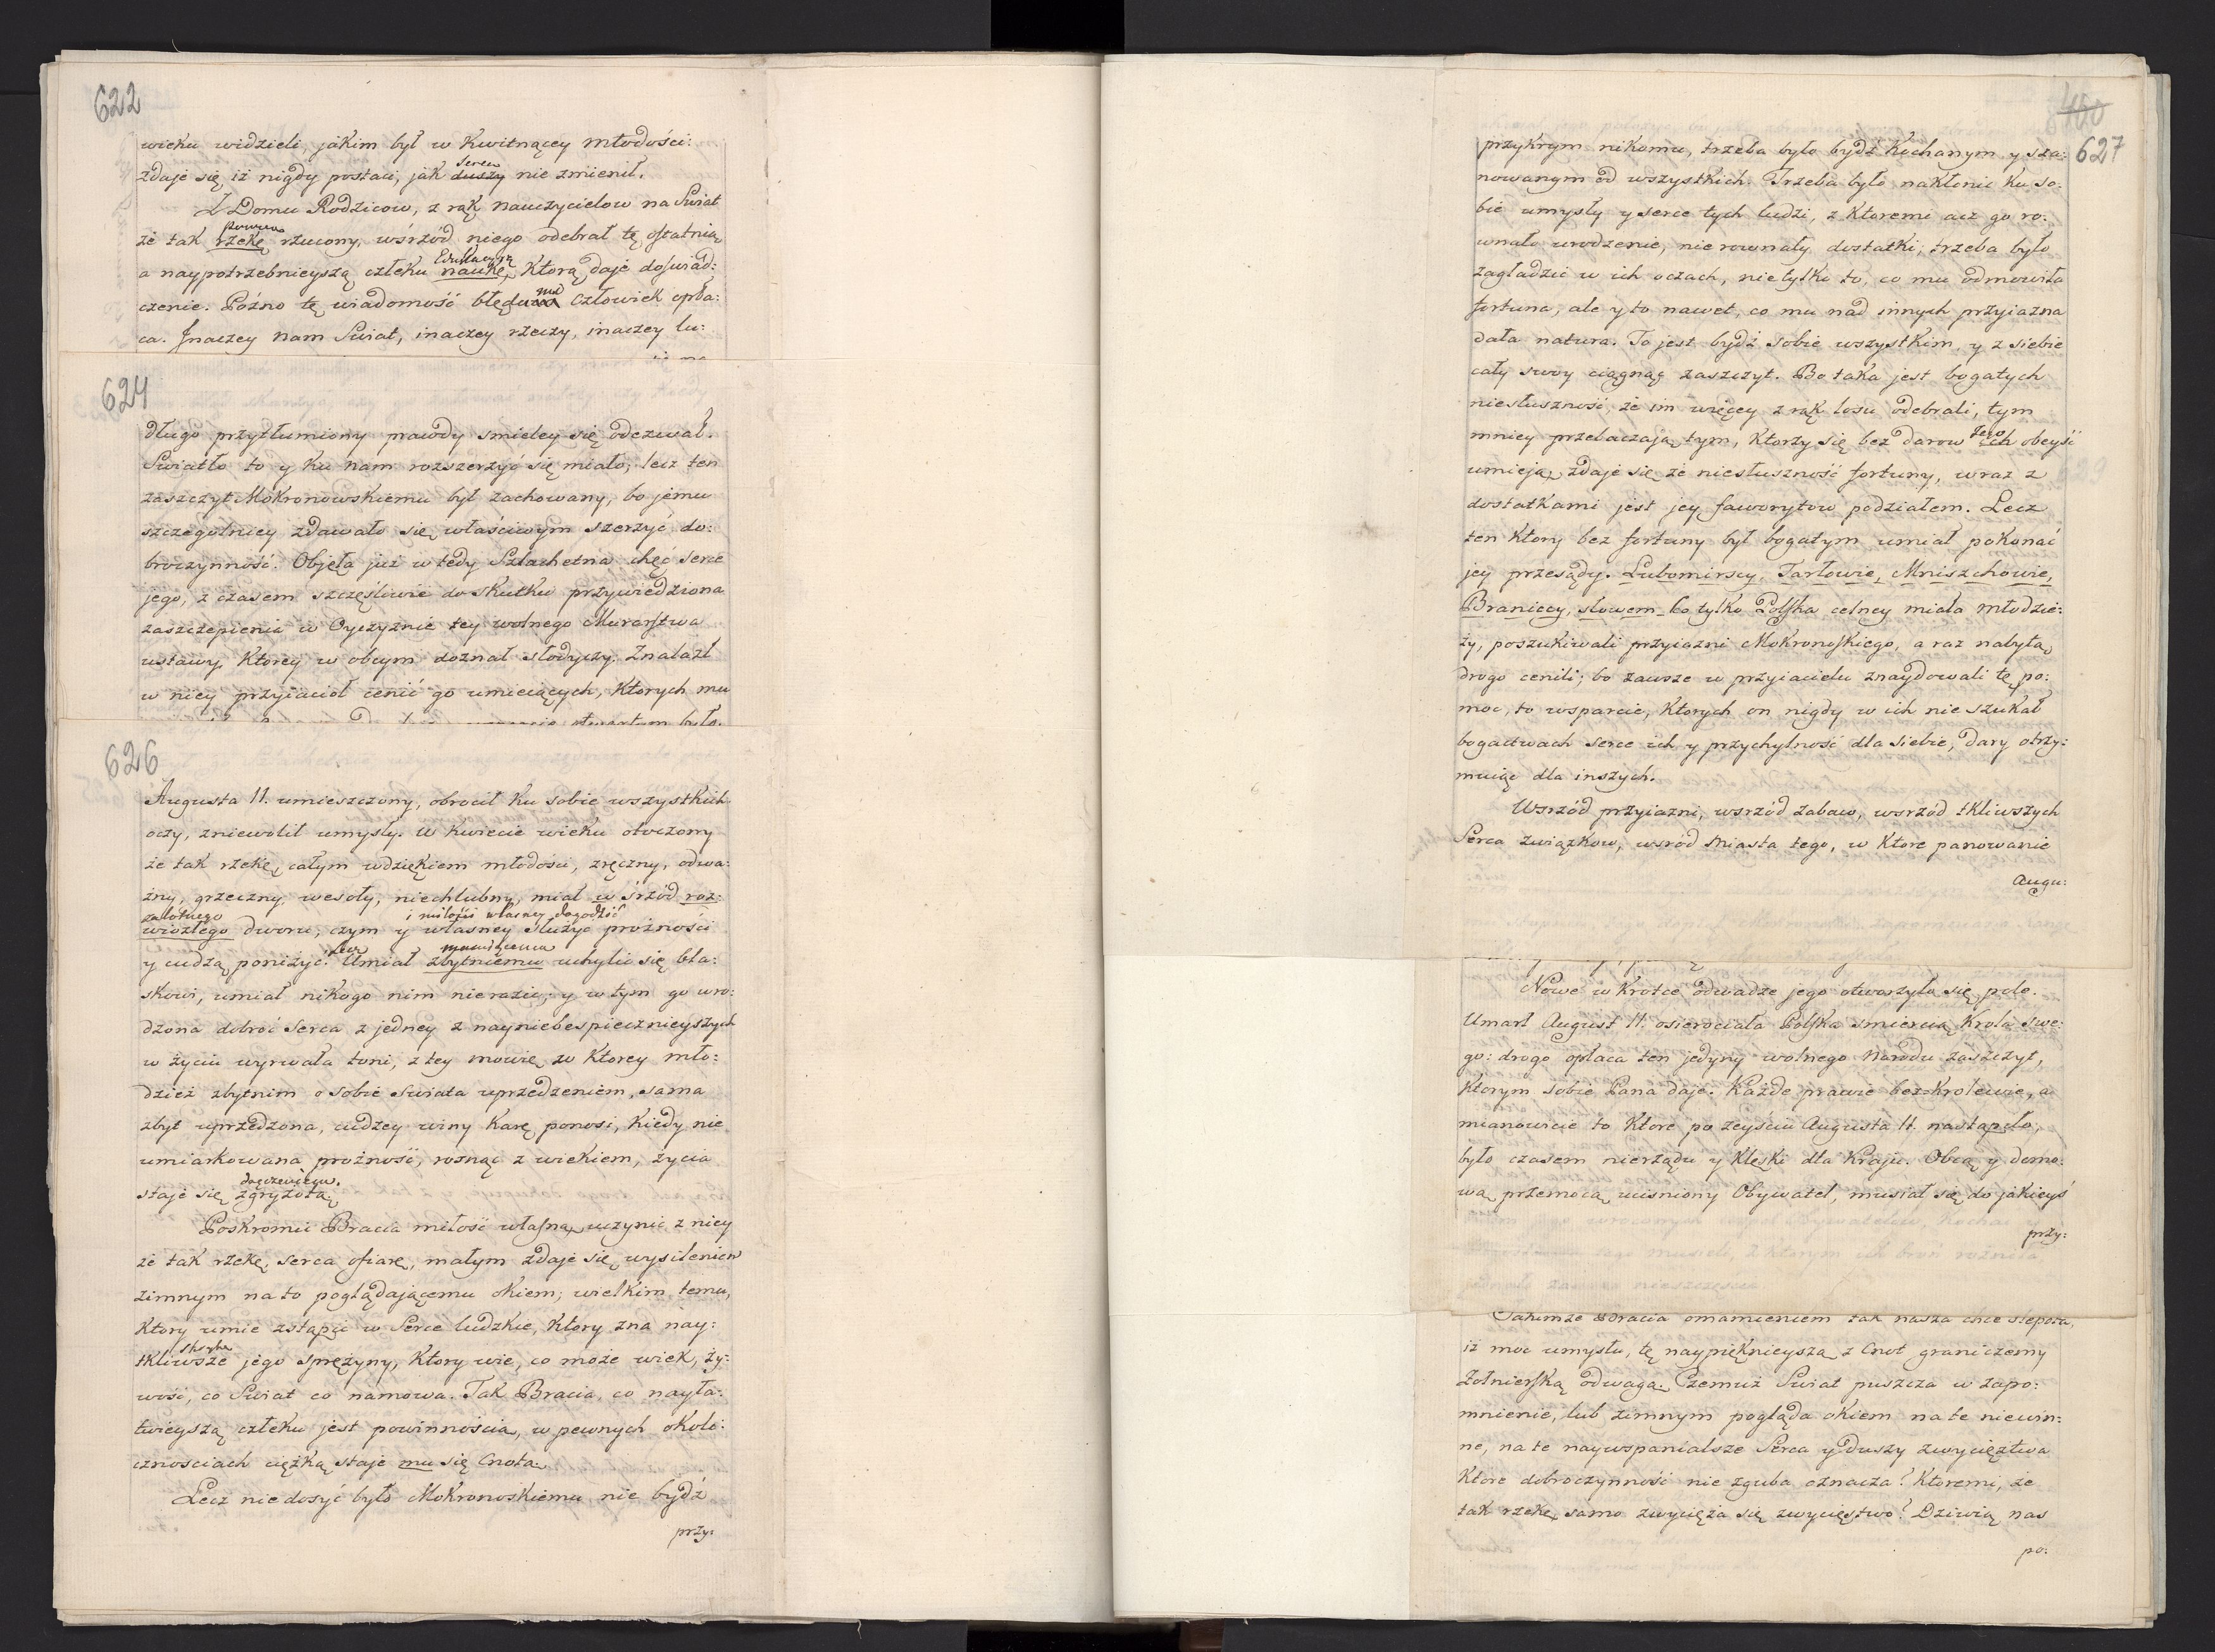 622
wieku widzieli, jakim był w Kwitnącey młodości:
zdaje się, iż nigdy postaci, jak duszy nie zmienił.
Z Domu Rodzicow, z rąk nauczycielow na Swiat
że tak rzekę rzucony, wśrzód niego odebrał tę ostatnią
a naypotrzebnieyszą człeku naukę, Ktorą daje doswiad:
czenie. Poźno tę wiadomość Człowiek opła:
ca. Jnaczey nam Swiat, inaczey rzeczy, inaczey lu:
624
długo przytłumiony prawdy smieley się odezwał.
Swiatło to y ku nam rozszerzyć się miało, lecz ten
zaszczyt Mokronowskiemu był zachowany, bo jemu
szczegolniey zdawało się właściwym szerzyć do:
broczynność. Objęła już wtedy Szlachetna chęć serce
jego, z czasem szczęśliwie do skutku przywiedziona
zaszczepienia w Oyczyznie tey wolnego Murarstwa
ustawy, Ktorey w obcym doznał słodyczy. Znalazł
w niey przyiacioł cenić go umieiących, Ktorych mu
626
Augusta II. umieszczony, obrocił ku sobie wszystkich
oczy, zniewolił umysły. W kwiecie wieku otoczony
że tak rzekę, całym wdziękiem młodości, zręczny, odwa:
żny, grzeczny, wesoły, niechlubny, miał w śrzód roz:
zalotnego i miłości własney dogodzić
wiozłego dworu, czym y własney służyć prożności
y cudzą poniżyć. Umiał zbytniemu uchylić się bla:
skowi, umiał nikogo nim nierazić; y w tym go wro:
dzona dobroć Serca z jedney z nayniebespiecznieyszych
w życiu wyrwała toni, z tey mowię w Ktorey mło:
dzież zbytnim o sobie Swiata uprzedzeniem, sama
zbyt uprzedzona, cudzey winy Karę ponosi, Kiedy nie
umiarkowana prożność, rosnąc z wiekiem, życia
staje się zgryzotą.
Poskromić Bracia miłość własną, uczynić z niey
że tak rzekę, serca ofiarę, małym zdaje się wysileniem
zimnym na to poglądającemu okiem; wielkim temu,
Ktory umie zstąpić w Serce ludzkie, Ktory zna nay:
tkliwsze jego sprężyny, Ktory wie, co może wiek, ży:
wość, co Swiat co namowa. Tak Bracia, co nayła:
twieyszą człeku jest powinnością, w pewnych okoli:
cznosciach ciężką staje mu się Cnotą.
Lecz niedosyć było Mokronoskiemu nie bydź
przy:
627
przykrym nikomu, trzeba było bydź Kochanym y sza:
nowanym od wszystkich. Trzeba było nakłonić ku so:
bie umysły y serce tych ludzi, z Ktoremi acz go ro:
wnało urodzenie, nie rownały dostatki; trzeba było
zagładzić w ich oczach, nietylko to, co mu odmowiła
fortuna, ale y to nawet, co mu nad innych przyiazna
dała natura. To jest bydź sobie wszystkim, y z siebie
cały swoy ciągnąć zaszczyt. Bo taka jest bogatych
niesłuszność, że im więcey z rąk losu odebrali, tym
mniey przebaczają tym, Ktorzy się bez darow jego obeyść
umieją, zdaje się że niesłuszność fortuny, wraz z
dostatkami jest jey faworytow podziałem. Lecz
ten Ktory bez fortuny był bogatym umiał pokonać
jey przesądy. Lubomirscy, Tarłowie, Mniszchowie,
Braniccy, słowem co tylko Polska celney miała młodzie:
ży, poszukiwali przyiazni Mokronoskiego, a raz nabytą
drogo cenili; bo zawsze w przyiacielu znaydowali tę po:
moc, to wsparcie, Ktorych on nigdy w ich nie szukał
bogactwach serce ich y przychylność dla siebie, dary otrzy:
muiąc dla inszych.
Wsrzód przyiazni, wsrzód zabaw, wsrzód tkliwszych
Serca związkow, wsród Miasta tego, w Ktore panowanie
Augu:
Nowe w Krotce odwadze jego otworzyło się pole.
Umarł August II. osierociała Polska smiercią Krola swe:
go: drogo opłaca ten jedyny wolnego Narodu zaszczyt,
Ktorym sobie Pana daje. Każde prawie bezkrolewie, a
mianowicie to Ktore po zeyściu Augusta II. nastąpiło,
było czasem nierządu y Klęski dla Kraju. Obcą y domo:
wą przemocą ucisniony Obywatel, musiał się do jakieyś
przy:
Takimże Bracia omamieniem tak nasza chce slepota,
iż moc umysłu, tę naypięknieyszą z Cnot graniczemy
Żołnierską odwagą. Czemuż Swiat puszcza w zapo:
mnienie, lub zimnym pogląda okiem na te niewin:
ne, na te naywspanialsze Serca y Duszy zwycięztwa
Ktore dobroczynność nie zguba oznacza? Ktoremi, że
tak rzekę, samo zwycięża się zwycięstwo? Dziwią nas
po: